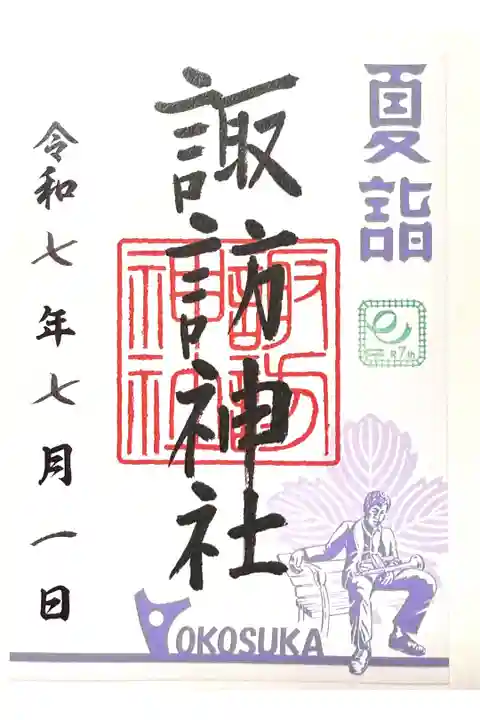 夏詣
R7th
諏訪神社
諏訪
神社
令和七年七月一日
YOKOSUKA